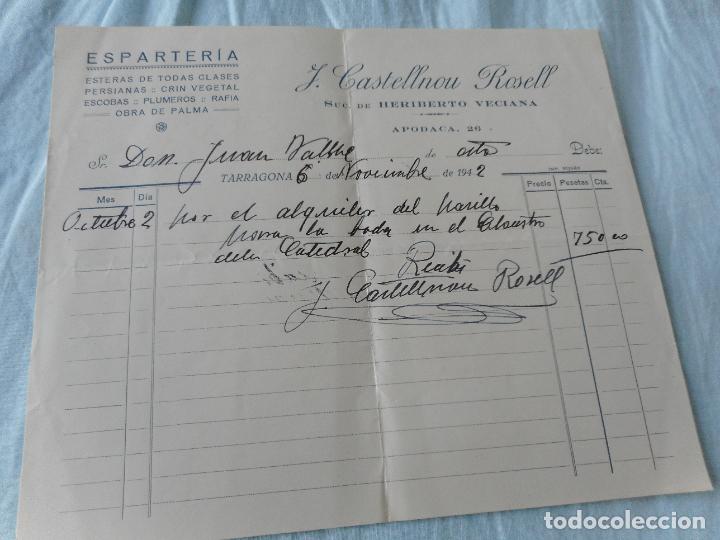 ESPARTERÍA
ESTERAS DE TODAS CLASES
PERSIANAS :: CRIN VEGETAL
ESCOBAS :: PLUMEROS :: RAFIA
OBRA DE PALMA
J. Castellnou Rosell
SUC. DE HERIBERTO VECIANA
APODACA, 26
Sr. Don Juan de esta Debe:
TARRAGONA 6 de Noviembre de 1942
Mes Día Precio Pesetas Cts.
Octubre 2 por el alquiler del pasillo
para la boda en el Claustro
dela Catedral 750 00
Recibí
J Castellnou Rosell
todocoleccion.net